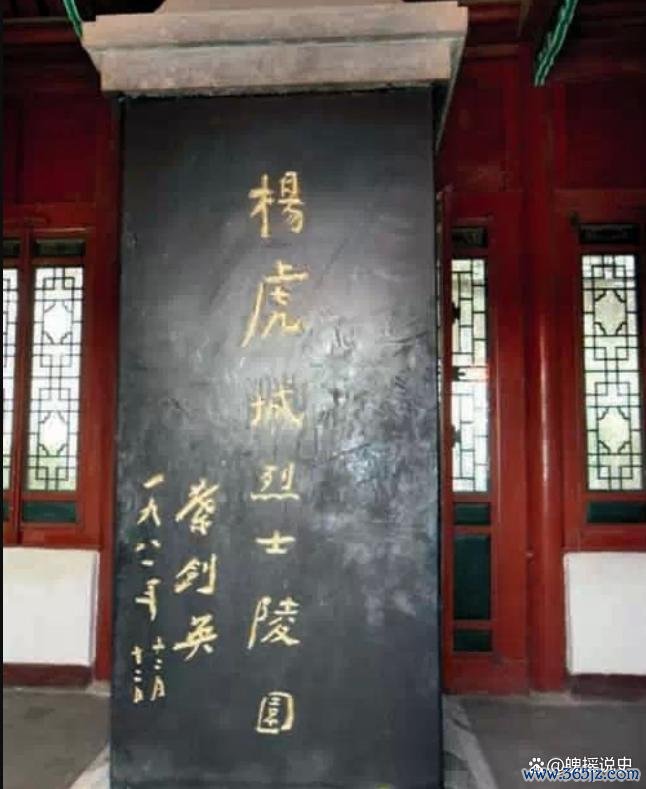 楊虎城烈士陵園
葉剑英
一九八一年
十二月
十二日
www.365jz.com